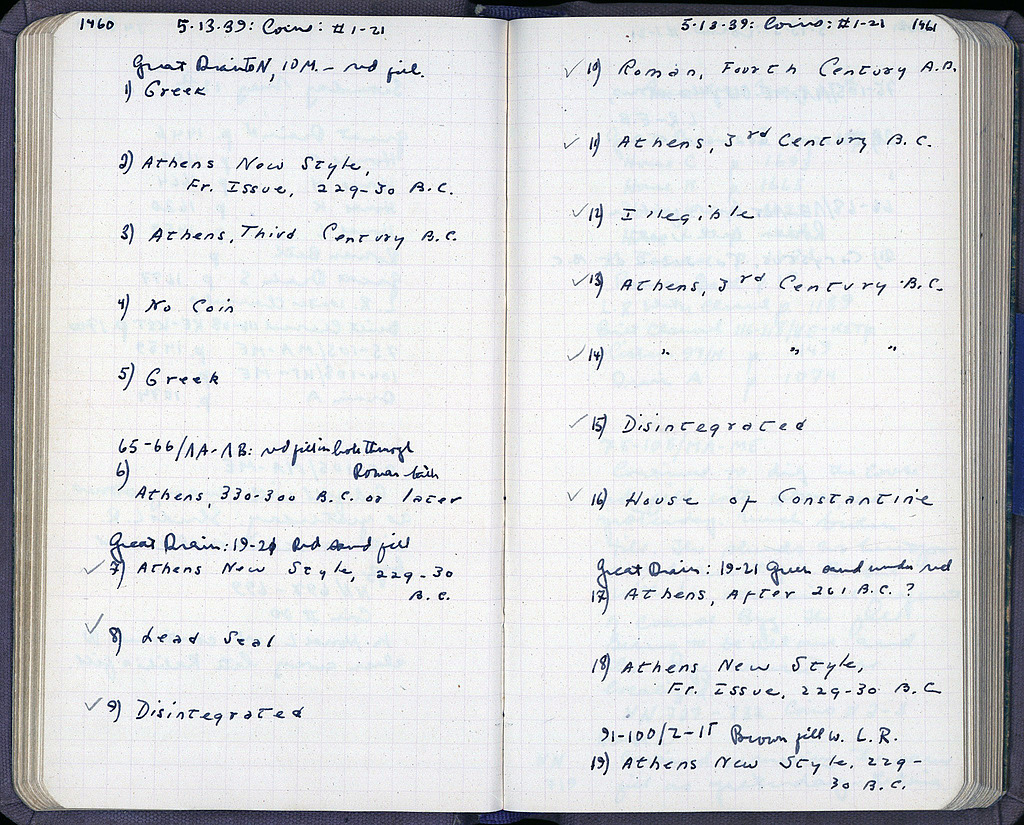 1460 5-13-39: Coins: #1-21
Great Drain N, 10 M. - red fill.
1) Greek
2) Athens New Style,
Fr. Issue, 229-30 B.C.
3) Athens, Third Century B.C.
4) No Coin
5) Greek
65-66/ΛΑ-ΛΒ: red fill in hole through
Roman bath
6)
Athens, 330-300 B.C. or later
Great Drain: 19-21 Red sand fill
✓ 7) Athens New Style, 229-30
B.C.
✓ 8) Lead Seal
✓ 9) Disintegrated
5-13-39: Coins: #1-21 1461
✓ 10) Roman, Fourth Century A.D.
✓ 11) Athens, 3rd Century B.C.
✓ 12) Illegible
✓ 13) Athens, 3rd Century B.C.
✓ 14) " " "
✓ 15) Disintegrated
✓ 16) House of Constantine
Great Drain: 19-21 Green sand under red
17) Athens, After 261 B.C.?
18) Athens New Style,
Fr. Issue, 229-30 B.C
91-100/2-15 Brown fill w. L.R.
19) Athens New Style, 229-
30 B.C.